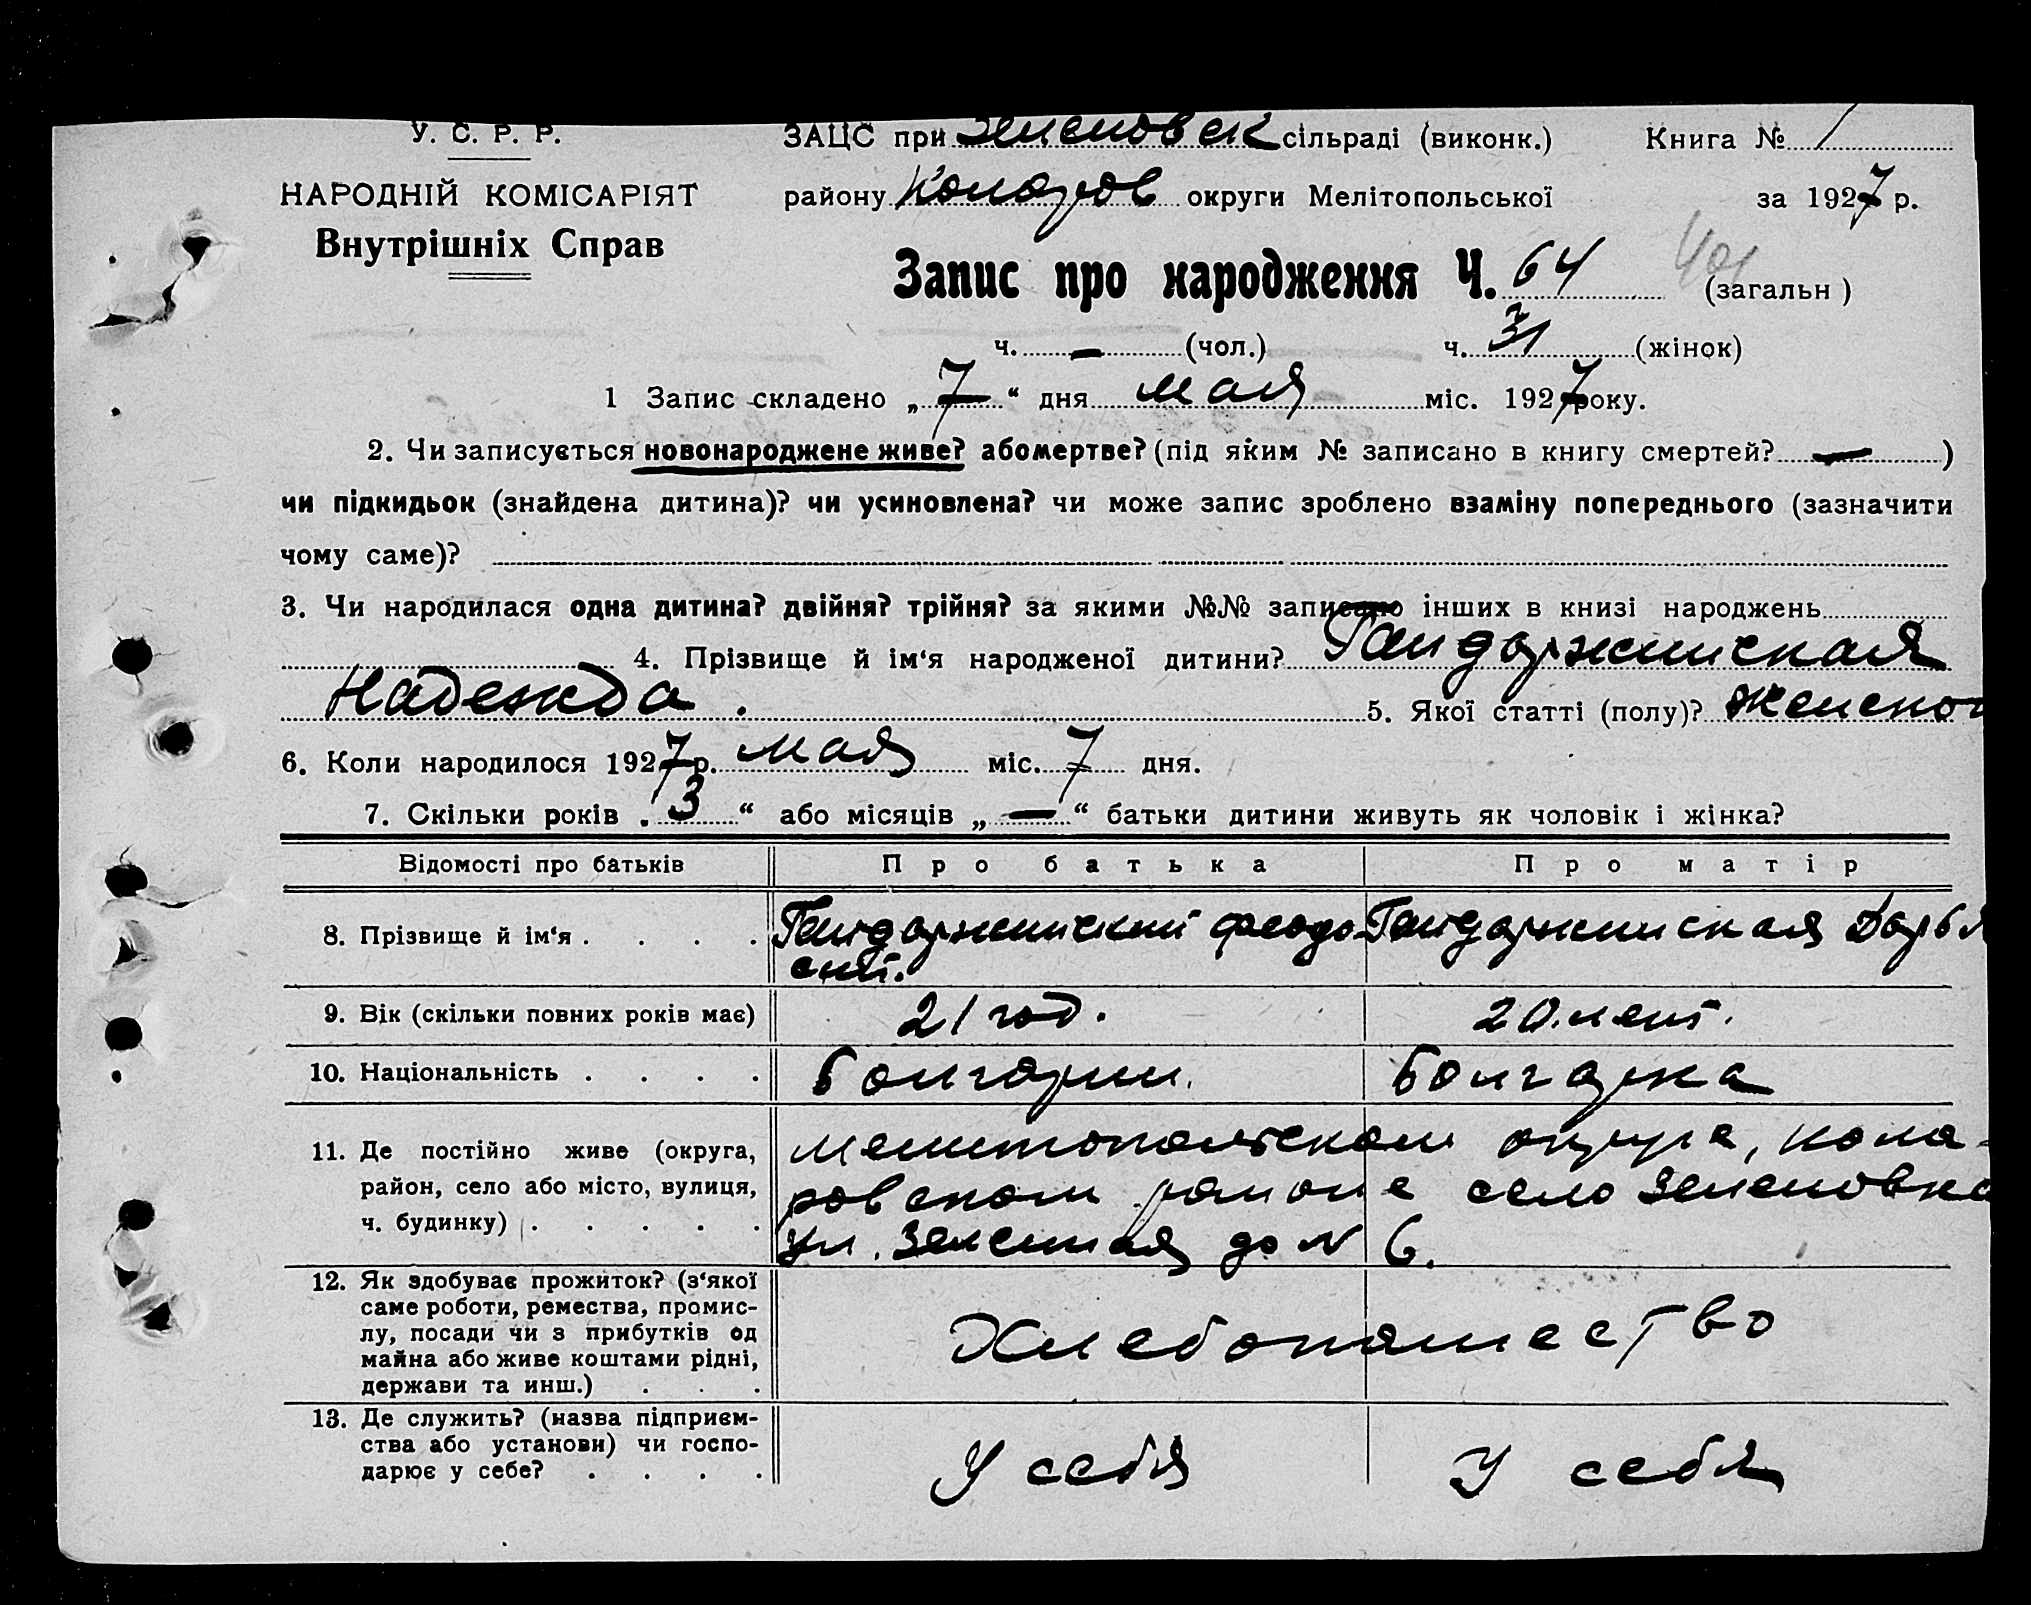 У. С. Р. Р.
НАРОДНІЙ КОМІСАРІЯТ
Внутрішніх Справ
ЗАЦС при Зеленовск сільраді (виконк.) Книга № 1
району Коларов округи Мелітопольської за 1927 р.
Запис про народження Ч. 64 401 (загальн)
ч. — (чол.) ч. 31 (жінок)
1 Запис складено „ 7 “ дня мая міс. 1927 року.
2. Чи записується новонароджене живе? або мертве? (під яким № записано в книгу смертей? — )
чи підкидьок (знайдена дитина)? чи усиновлена? чи може запис зроблено взаміну попереднього (зазначити
чому саме)?
3. Чи народилася одна дитина? двійня? трійня? за якими №№ записано інших в книзі народжень
4. Прізвище й ім‘я народженої дитини? Гайдаржийская
Надежда. 5. Якої статті (полу)? Женской
6. Коли народилося 1927 р. мая міс. 7 дня.
7. Скільки років „ 3 “ або місяців „ — “ батьки дитини живуть як чоловік і жінка?
Відомості про батьків Про батька Про матір
8. Прізвище й ім‘я . . . . Гайдаржийский Феодо- Гайдаржийская Дарья
сий.
9. Вік (скільки повних років має) 21 год. 20 лет.
10. Національність . . . . Болгарин. Болгарка
11. Де постійно живе (округа, Мелитопольском округе, Кола-
район, село або місто, вулиця, ровском районе село Зеленовка
ч. будинку) . . . . . ул. Зеленная до № 6.
12. Як здобуває прожиток? (з‘якої
саме роботи, ремества, промис-
лу, посади чи з прибутків од Хлебопашество
майна або живе коштами рідні,
держави та инш.) . . .
13. Де служить? (назва підприєм-
ства або установи) чи госпо- У себя У себя
дарює у себе? . . . .